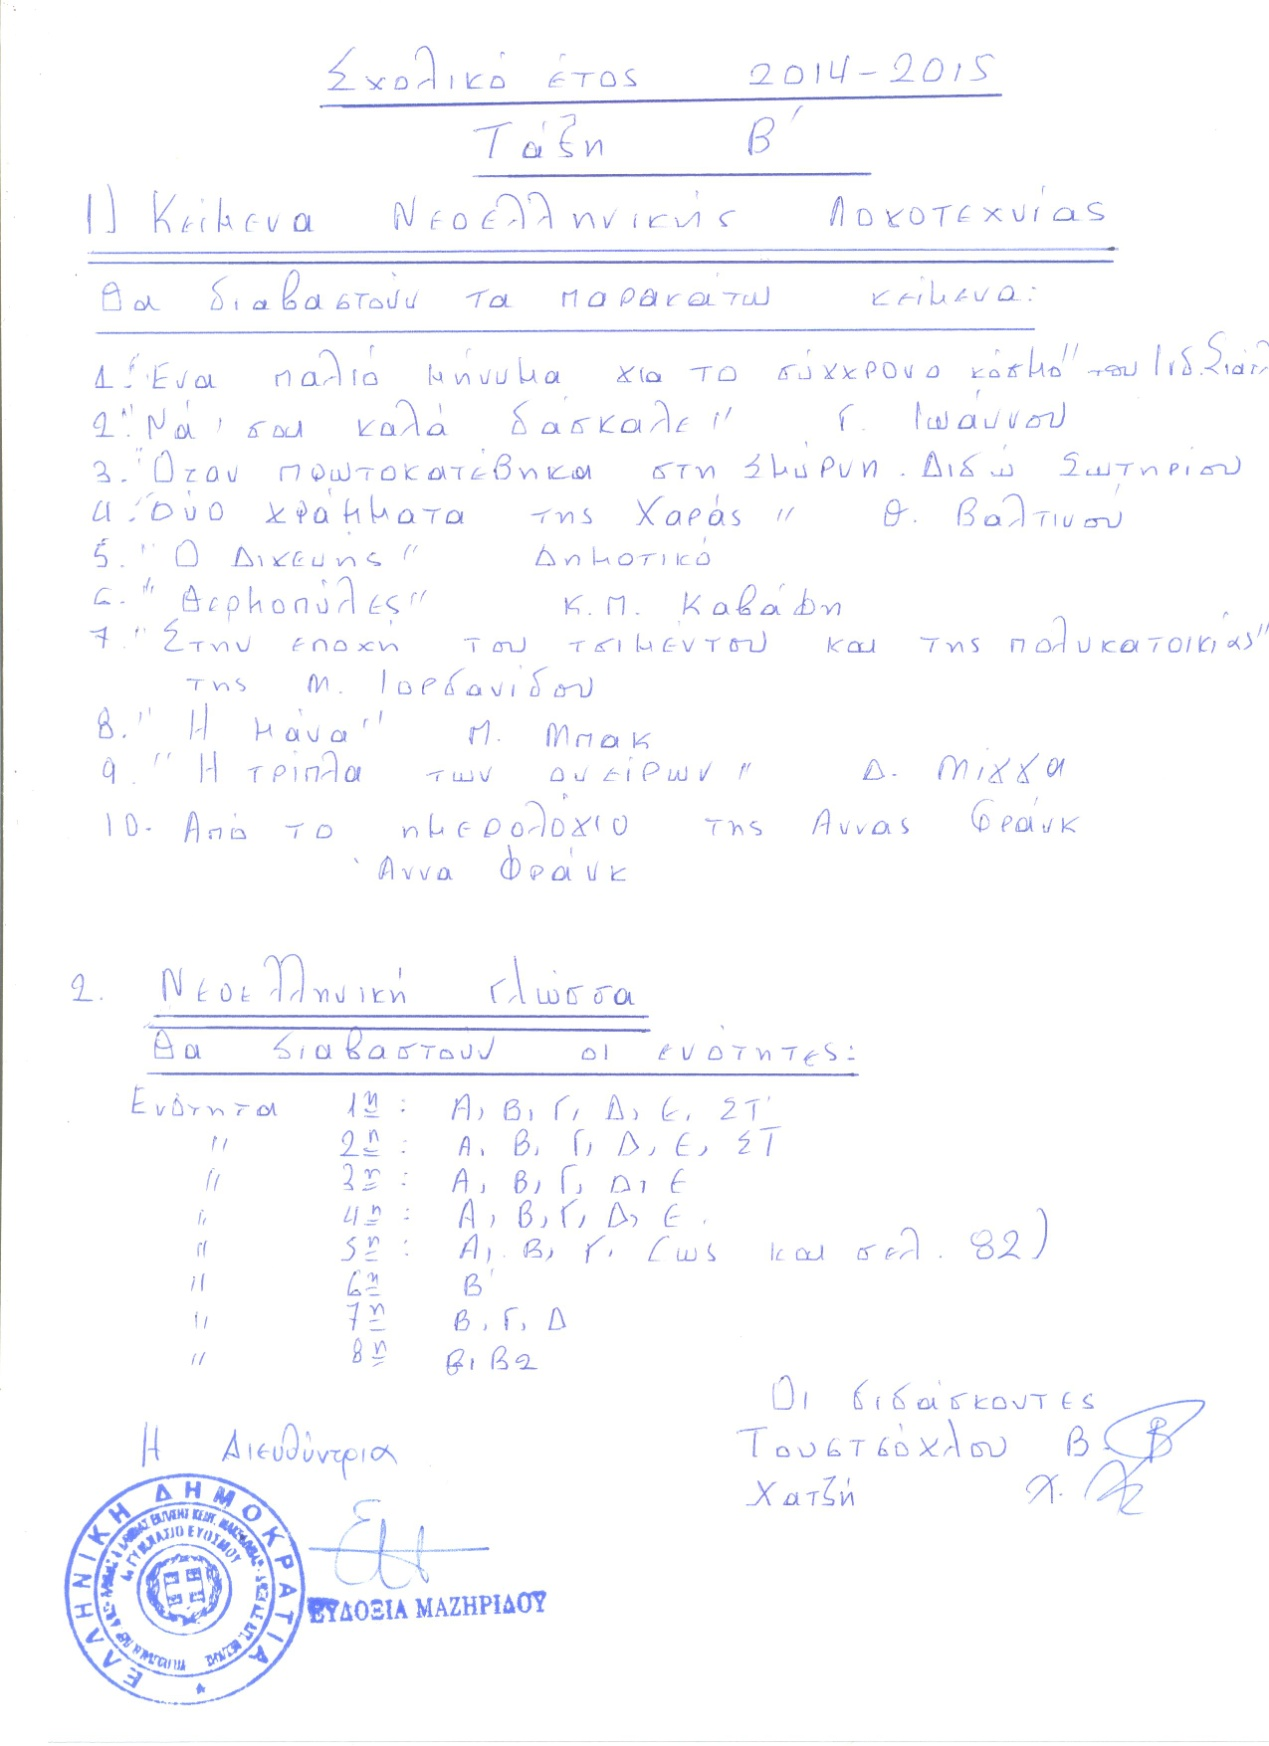 Σχολικό έτος 2014-2015
Τάξη Β΄
1) Κείμενα Νεοελληνικής Λογοτεχνίας
Θα διαβαστούν τα παρακάτω κείμενα:
1. "Ένα παλιό μήνυμα για το σύγχρονο κόσμο" του Ινδ. Σιάτλ
2. "Νά 'σαι καλά δάσκαλε" Γ. Ιωάννου
3. "Όταν πρωτοκατέβηκα στη Σμύρνη. Διδώ Σωτηρίου
4. "Δύο γράμματα της Χαράς" Θ. Βαλτινού
5. "Ο Διγενής" Δημοτικό
6. "Θερμοπύλες" Κ.Π. Καβάφη
7. "Στην εποχή του τσιμέντου και της πολυκατοικίας"
της Μ. Ιορδανίδου
8. "Η μάνα" Π. Μπακ
9. "Η τρίπλα των ονείρων" Δ. Μίγγα
10. Από το ημερολόγιο της Άννας Φράνκ
Άννα Φράνκ
2. Νεοελληνική Γλώσσα
Θα διαβαστούν οι ενότητες:
Ενότητα 1η: Α, Β, Γ, Δ, Ε, ΣΤ'
" 2η: Α, Β, Γ, Δ, Ε, ΣΤ
" 3η: Α, Β, Γ, Δ, Ε
" 4η: Α, Β, Γ, Δ, Ε.
" 5η: Α, Β, Γ. (ως και σελ. 82)
" 6η Β'
" 7η Β, Γ, Δ
" 8η Β1 Β2
Οι διδάσκοντες
Η Διευθύντρια
Τουστσόγλου Β.
Χατζή Χ.
ΕΛΛΗΝΙΚΗ ΔΗΜΟΚΡΑΤΙΑ
ΓΥΜΝΑΣΙΟ ΕΥΟΣΜΟΥ
ΕΥΔΟΞΙΑ ΜΑΖΗΡΙΔΟΥ